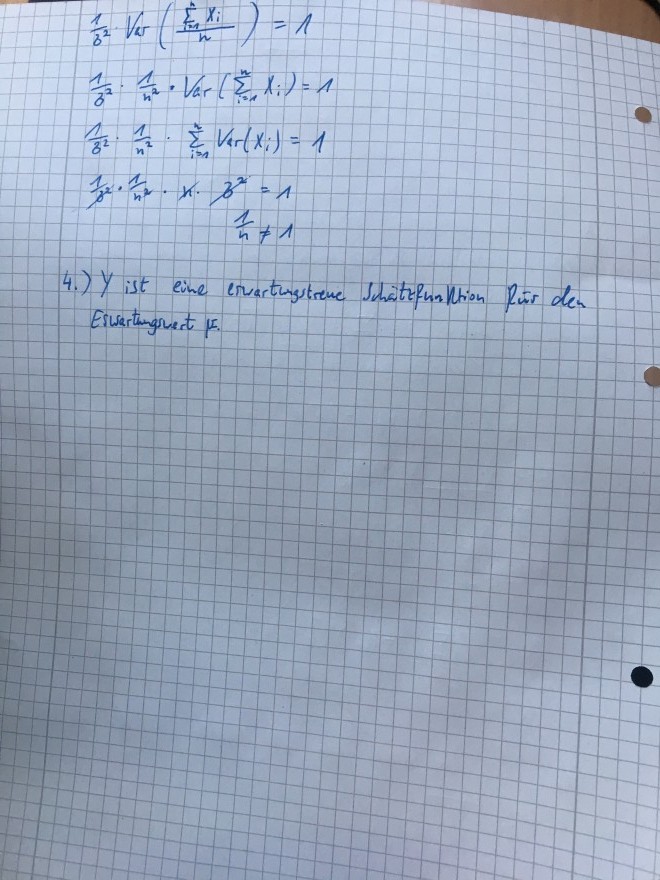 1/σ² Var ( Σ_{i=1}^{n} Xi / n ) = 1
1/σ² · 1/n² · Var ( Σ_{i=1}^{n} Xi ) = 1
1/σ² · 1/n² · Σ_{i=1}^{n} Var(Xi) = 1
1/σ² · 1/n² · n · σ² = 1
1/n ≠ 1
4.) Y ist eine erwartungstreue Schätzfunktion für den
Erwartungswert μ.